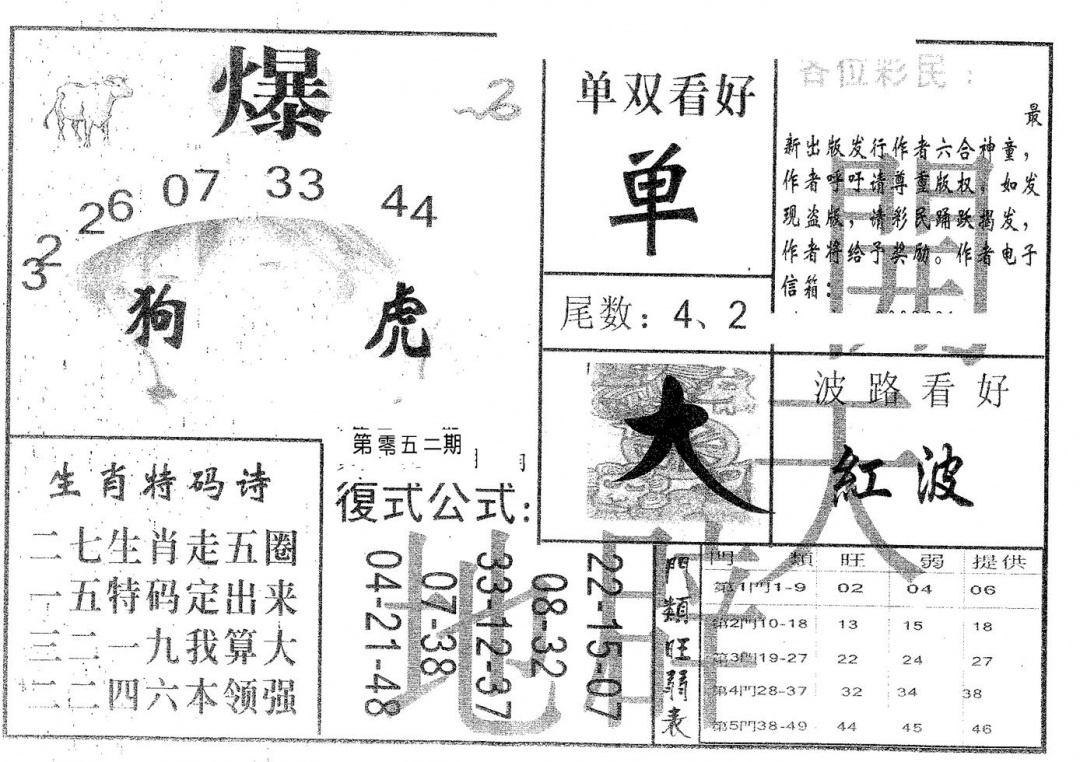 爆
32 26 07 33 44
狗 虎
单双看好
单
尾数：4、2
各位彩民：
最
新出版发行作者六合神童，
作者呼吁请尊重版权。如发
现盗版，情彩民踊跃揭发，
作者将给予奖励。作者电子
信箱：
大
波路看好
紅波
第零五二期
復式公式：
04-21-48
07-38
33-12-37
08-32
22-15-07
生肖特码诗
二七生肖走五圈
一五特码定出来
三二一九我算大
二二四六本领强
門類旺弱表
門 類 旺 弱 提供
第1門1-9 02 04 06
第2門10-18 13 15 18
第3門19-27 22 24 27
第4門28-37 32 34 38
第5門38-49 44 45 46